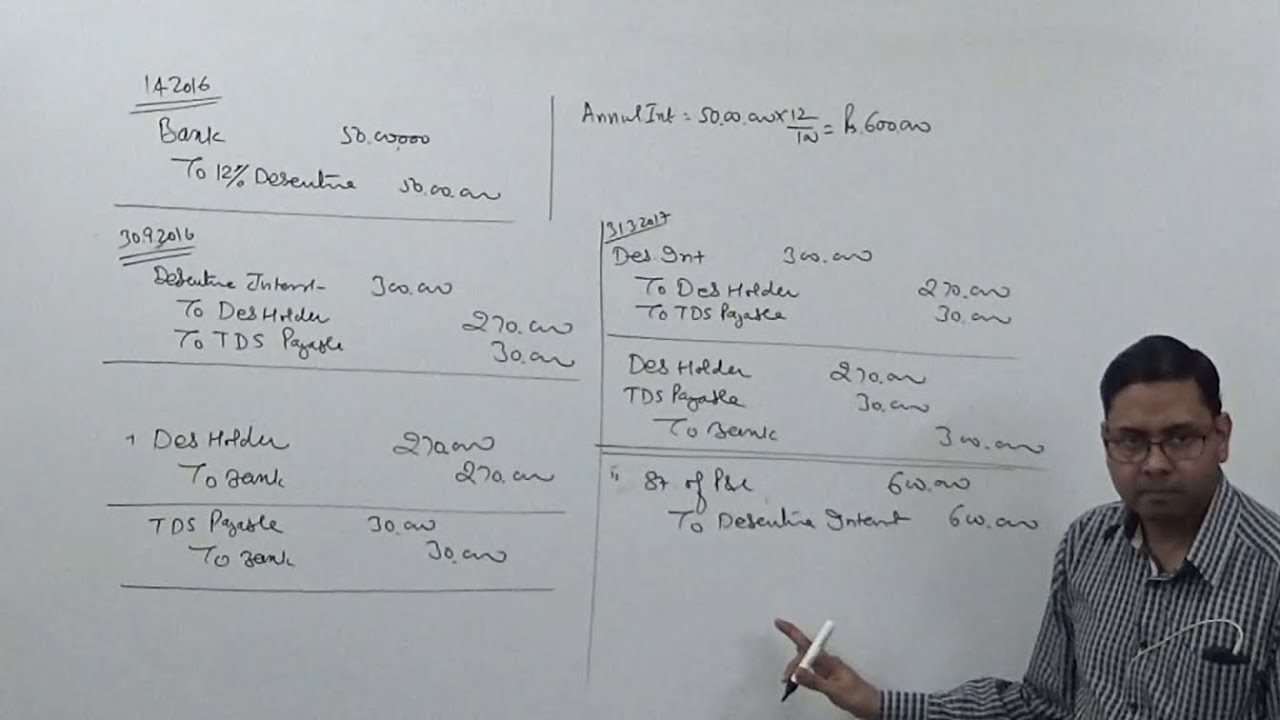 1.4.2016
Bank 50.00,000
To 12% Debenture 50.00.000
Annul Int = 50.00.000 x 12/100 = Rs. 600.000
30.9.2016
Debenture Interest 300.000
To Deb Holder 270.000
To TDS Payable 30.000
Deb Holder 270.000
To Bank 270.000
TDS Payable 30.000
To Bank 30.000
31.3.2017
Deb. Int 300.000
To Deb Holder 270.000
To TDS Payable 30.000
Deb Holder 270.000
TDS Payable 30.000
To Bank 300.000
St of P&L 600.000
To Debenture Interest 600.000